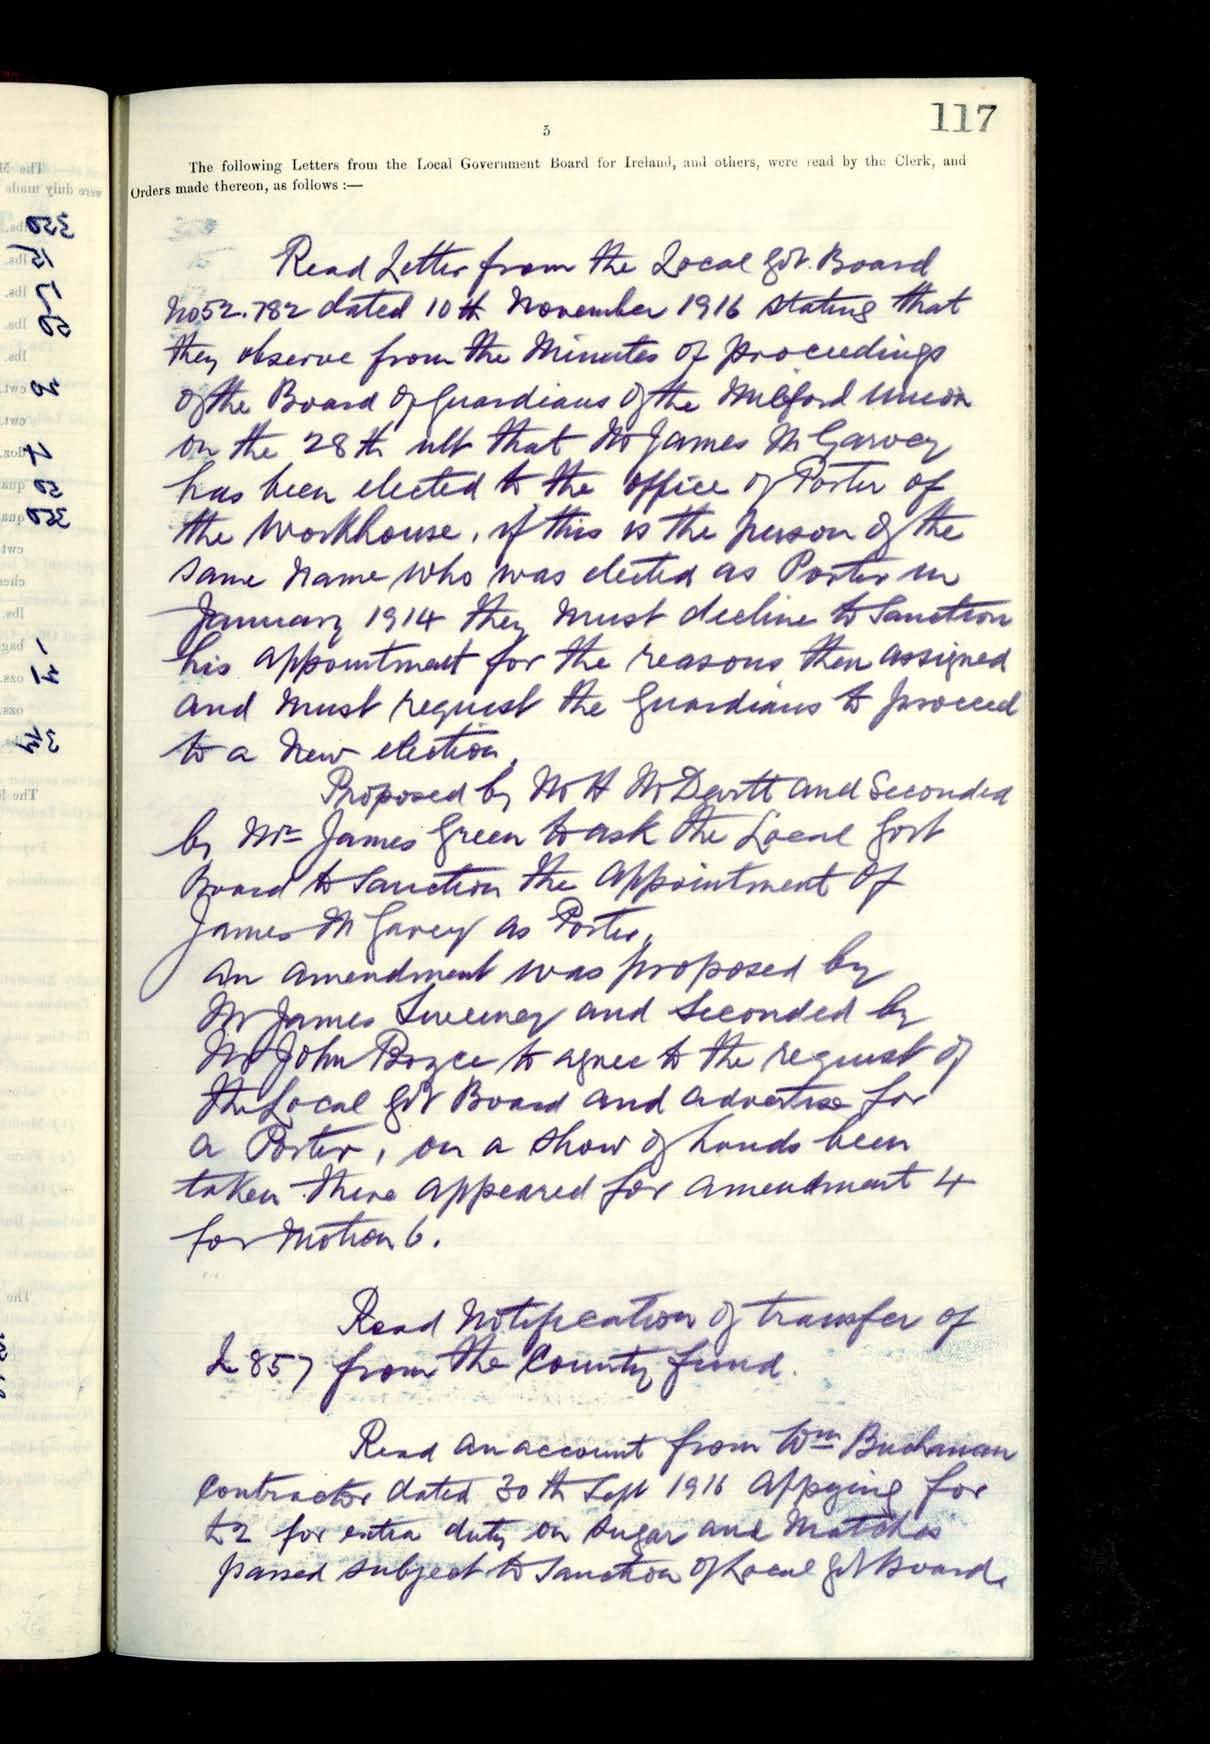 117
5
The following Letters from the Local Government Board for Ireland, and others, were read by the Clerk, and
Orders made thereon, as follows :—
Read Letter from the Local Gvt. Board
No 52.782 dated 10th November 1916 stating that
they observe from the Minutes of proceedings
of the Board of Guardians of the Milford Union
on the 28th ult that Mr James McGarvey
has been elected to the office of Porter of
the Workhouse, if this is the person of the
same name who was elected as Porter in
January 1914 they must decline to Sanction
his appointment for the reasons then assigned
and must request the Guardians to proceed
to a New election,
Proposed by Mr H McDevitt and Seconded
by Mr James Green to ask the Local Govt
Board to Sanction the appointment of
James McGarvey as Porter,
an amendment was proposed by
Mr James Sweeney and Seconded by
Mr John Boyce to agree to the request of
the Local Gvt Board and advertise for
a Porter, on a show of hands been
taken there appeared for amendment 4
for Motion 6.
Read Notification of transfer of
£ 857 from the County fund.
Read an account from Wm Buchanan
Contractor dated 30th Sept 1916 appying for
£2 for extra duty on sugar and Matches
passed subject to Sanction of Local Gvt Board.